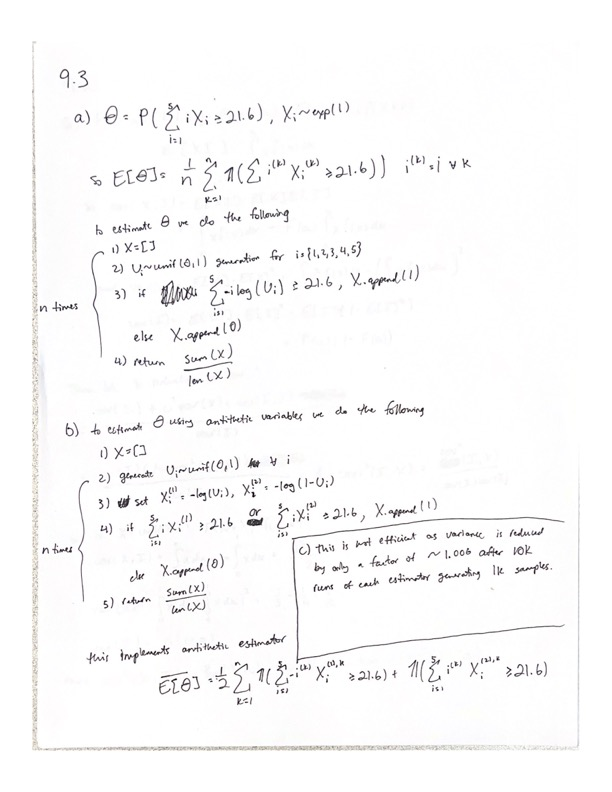 9.3
a) θ = P(∑_{i=1}^{5} iX_i ≥ 21.6), X_i ~ exp(1)
so E[θ] = 1/n ∑_{k=1}^{n} 𝟙(∑ i^{(k)} X_i^{(k)} ≥ 21.6)) i^{(k)} = i ∀ k
to estimate θ we do the following
1) X=[]
2) U_i ~ unif(0,1) generation for i ∈ {1,2,3,4,5}
n times
3) if ∑_{i=1}^{5} -i log(U_i) ≥ 21.6, X.append(1)
else X.append(0)
4) return sum(X)/len(X)
b) to estimate θ using antithetic variables we do the following
1) X=[]
2) generate U_i ~ unif(0,1) ∀ i
3) set X_i^{(1)} = -log(U_i), X_i^{(2)} = -log(1-U_i)
4) if ∑_{i=1}^{5} i X_i^{(1)} ≥ 21.6 or ∑_{i=1}^{5} i X_i^{(2)} ≥ 21.6, X.append(1)
n times
else X.append(0)
5) return sum(X)/len(X)
c) this is not efficient as variance is reduced
by only a factor of ~1.006 after 10K
runs of each estimator generating 1k samples.
this implements antithetic estimator
E[θ] = 1/2 ∑_{k=1}^{n} 𝟙(∑_{i=1}^{5} -i^{(k)} X_i^{(1),k} ≥ 21.6) + 𝟙(∑_{i=1}^{5} i^{(k)} X_i^{(2),k} ≥ 21.6)